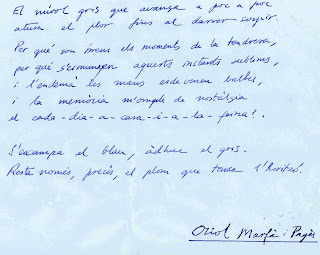 El núvol gris que avança a poc a poc
atura el plor fins al darrer sospir.
Per què són breus els moments de la tendresa,
per què s'esmunyen aquests instants sublims,
i l'endemà les mans esdevenen balbes,
i la memòria m'omple de nostàlgia
el cada-dia-a-casa-i-a-la-feina?.
S'escampa el blau, àdhuc el gris.
Resta només, precís, el plom que tensa l'horitzó.
Oriol Marfà i Pagès